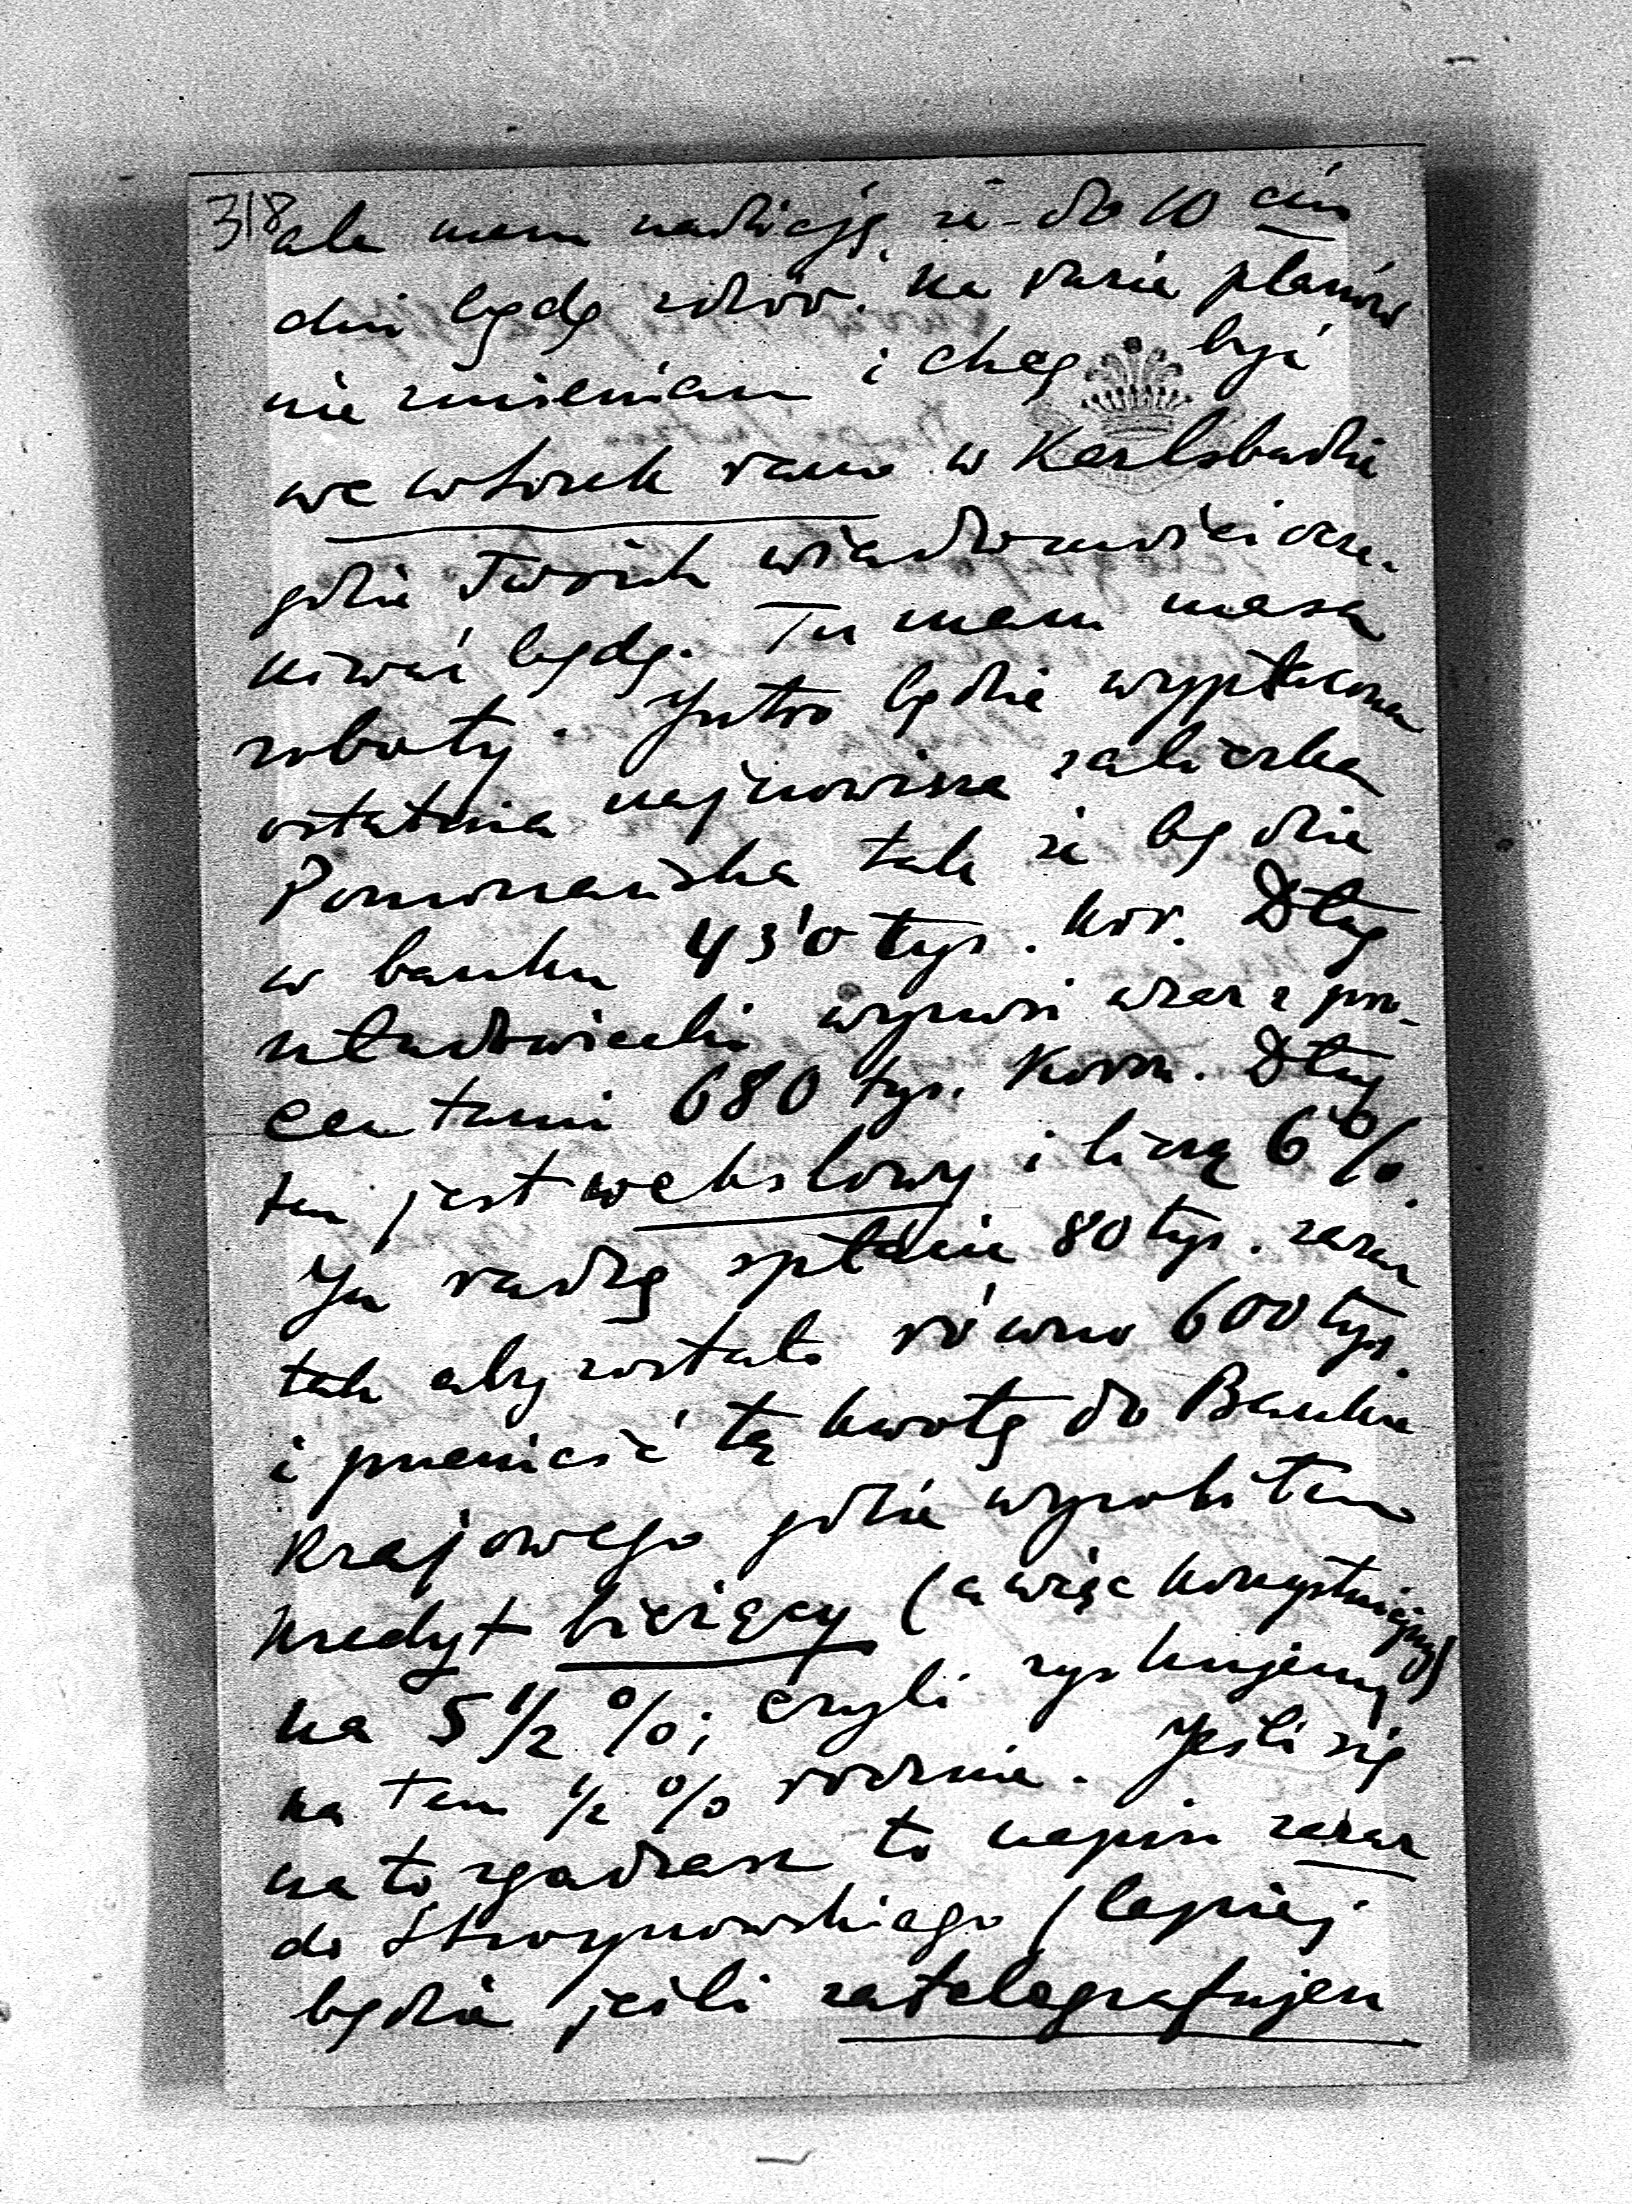 318
ale mam nadzieję że do 10 ciu
dni będę zdrów. Na razie planów
nie zmieniam i chcę być
we wtorek rano w Karlsbadzie
gdzie Twoich wiadomości ocze-
kiwać będę. Tu mam masę
roboty. Jutro będzie wypłacona
ostatnia najnowsza zaliczka
Pomorzańska tak że będzie
w banku 430 tyś. kor. Dług
w banku 680 tyś. Koron. Dług
ten jest wekslowy i liczą 6%.
Ja radzę spłacić 80 tyś. zaraz
tak aby zostało równo 600 tyś.
i przenieść tę kwotę do Banku
Krajowego gdzie wyrobiłem
kredyt bieżący (a więc korzystniejszy)
na 5 1/2 %; czyli zyskujemy
na tem 1/2 % rocznie. Jeśli się
na to zgadzasz to napisz zaraz
do Stroynowskiego (lepiej
będzie jeśli zatelegrafujesz